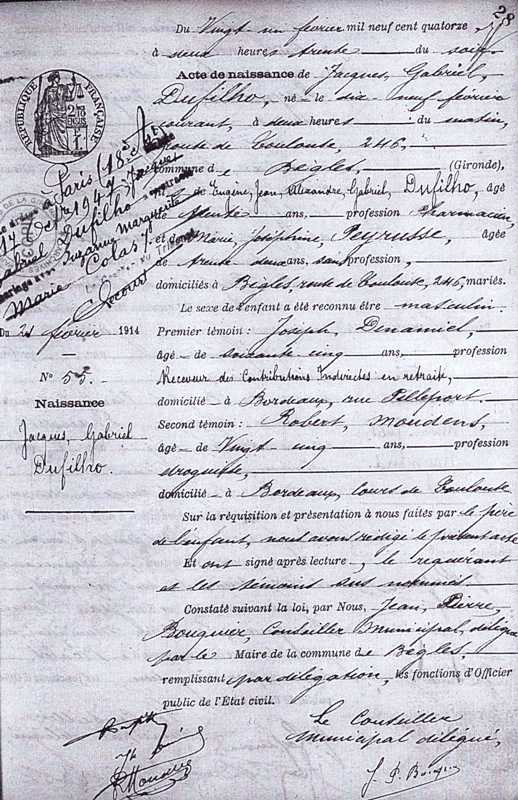 28
Du Vingt un février mil neuf cent quatorze
à deux heures trente du soir
Acte de naissance de Jacques, Gabriel,
Dufilho, né le dix neuf février
courant, à deux heures du matin,
route de Toulouse, 246,
commune de Bègles, (Gironde),
de Eugène, Jean, Alexandre, Gabriel, Dufilho, âgé
de trente ans, profession Pharmacien,
et de Marie, Joséphine, Peyrusse, âgée
de trente deux ans, sans profession,
domiciliés à Bègles, route de Toulouse, 246, mariés.
Le sexe de l'enfant a été reconnu être masculin.
Premier témoin : Joseph, Dinamiel,
âgé de soixante cinq ans, profession
Receveur des Contributions Indirectes en retraite,
domicilié à Bordeaux, rue Pelleport.
Second témoin : Robert, Moudens,
âgé de Vingt cinq ans, profession
droguiste,
domicilié à Bordeaux, cours de Toulouse
Sur la réquisition et présentation à nous faites par le père
de l'enfant, nous avons rédigé le présent acte
Et ont signé après lecture, le requérant
et les témoins sus nommés
Constaté suivant la loi, par Nous, Jean, Pierre,
Bouguier, Conseiller Municipal, délégué
par le Maire de la commune de Bègles,
remplissant par délégation, les fonctions d'Officier
public de l'État civil.
Le Conseiller
municipal délégué,
RÉPUBLIQUE FRANÇAISE
Paris (18e)
1947
Dufilho
Suzanne Marguerite
Marie Colas
Du 21 février 1914
N° 55.
Naissance
Jacques, Gabriel
Dufilho.